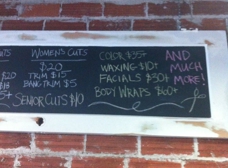 WOMEN'S CUTS
$20
TRIM $15
BANG TRIM $5
SENIOR CUTS $10
COLOR $55+
WAXING $10+
FACIALS $30+
BODY WRAPS $60+
AND
MUCH
MORE!
CUTS
$20